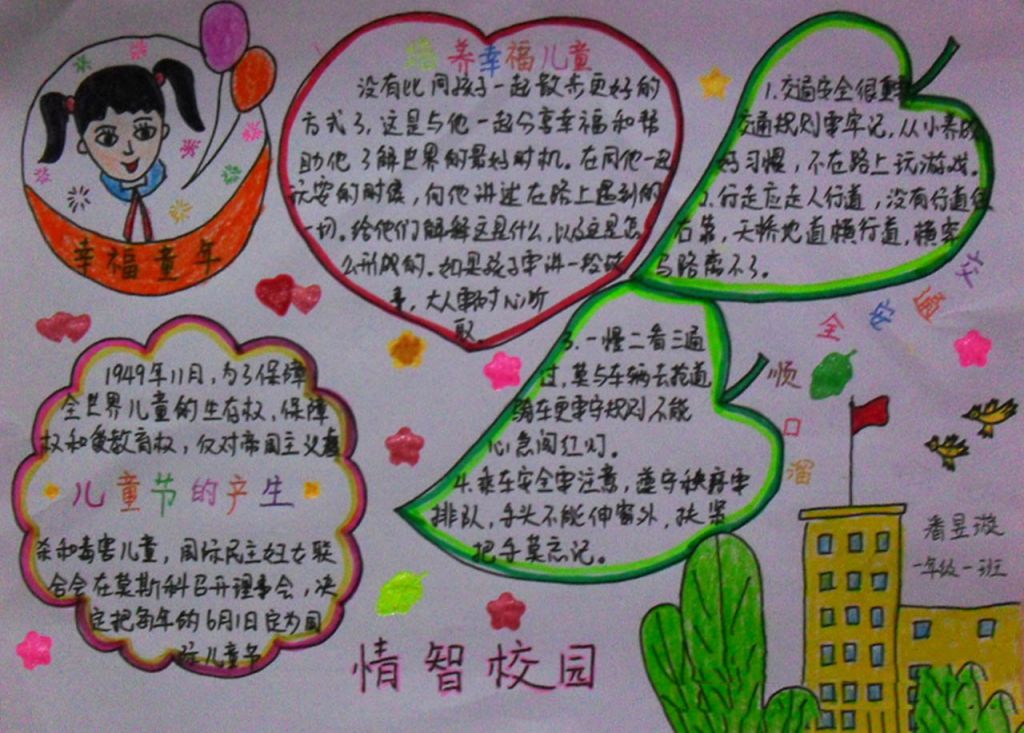 幸福童年
培养幸福儿童
没有比同孩子一起散步更好的
方式了,这是与他一起分享幸福和帮
助他了解世界的最好时机。在同他一起
玩安的时候,向他讲述在路上遇到的
一切。给他们解释这是什么,以及这是怎
么形成的。如果孩子要讲一段故
事,大人要耐心听
取。
1.交通安全很重要
交通规则要牢记,从小养成
好习惯,不在路上玩游戏。
2.行走应走人行道,没有行道往
右靠,天桥地道横行道,横穿
马路离不了。
交通安全
顺口溜
3.一慢二看三通
过,莫与车辆去抢道
骑车更要守规则不能
心急闯红灯。
4.乘车安全要注意,遵守秩序要
排队,手头不能伸窗外,扶紧
把手莫忘记。
1949年11月,为了保障
全世界儿童的生存权,保障
权和受教育权,反对帝国主义虐
儿童节的产生
杀和毒害儿童,国际民主妇女联
合会在莫斯科召开理事会,决
定把每年的6月1日定为国
际儿童节
情智校园
潘昱璇
一年级一班